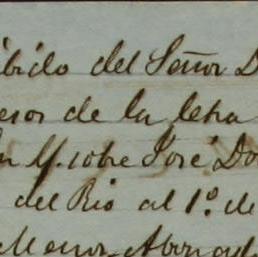 ibido del Señor D
esor de la letra
n M. sobre José Do
del Rio al 1º. de
Menor, Abogad